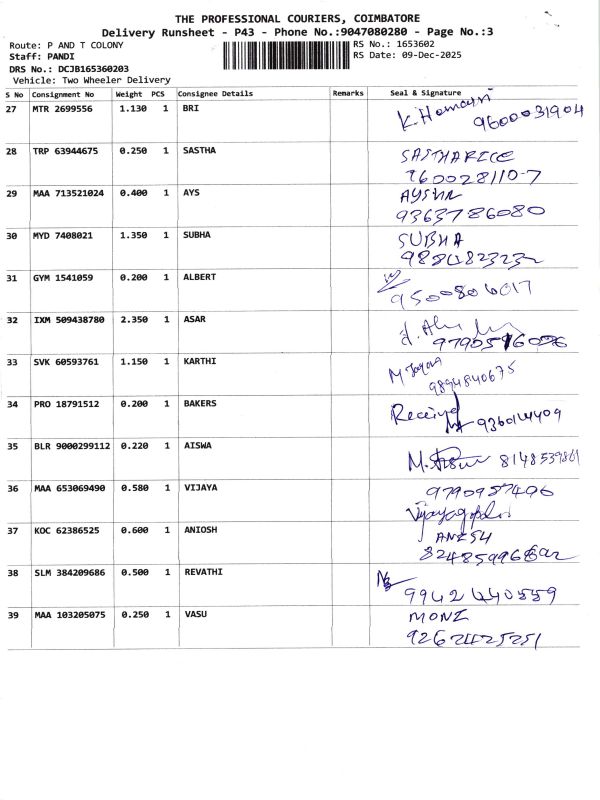 THE PROFESSIONAL COURIERS, COIMBATORE
Delivery Runsheet - P43 - Phone No.:9047080280 - Page No.:3
Route: P AND T COLONY RS No.: 1653602
Staff: PANDI RS Date: 09-Dec-2025
DRS No.: DCJB165360203
Vehicle: Two Wheeler Delivery
S No Consignment No Weight PCS Consignee Details Remarks Seal & Signature
27 MTR 2699556 1.130 1 BRI
9600031904
28 TRP 63944675 0.250 1 SASTHA SASTHARICE
9600281107
29 MAA 713521024 0.400 1 AYS
9363786080
30 MYD 7408021 1.350 1 SUBHA SUBHA
31 GYM 1541059 0.200 1 ALBERT
9500806017
32 IXM 509438780 2.350 1 ASAR
33 SVK 60593761 1.150 1 KARTHI
9894840675
34 PRO 18791512 0.200 1 BAKERS Received
35 BLR 9000299112 0.220 1 AISWA
36 MAA 653069490 0.580 1 VIJAYA
37 KOC 62386525 0.600 1 ANIOSH
38 SLM 384209686 0.500 1 REVATHI
9942440559
39 MAA 103205075 0.250 1 VASU